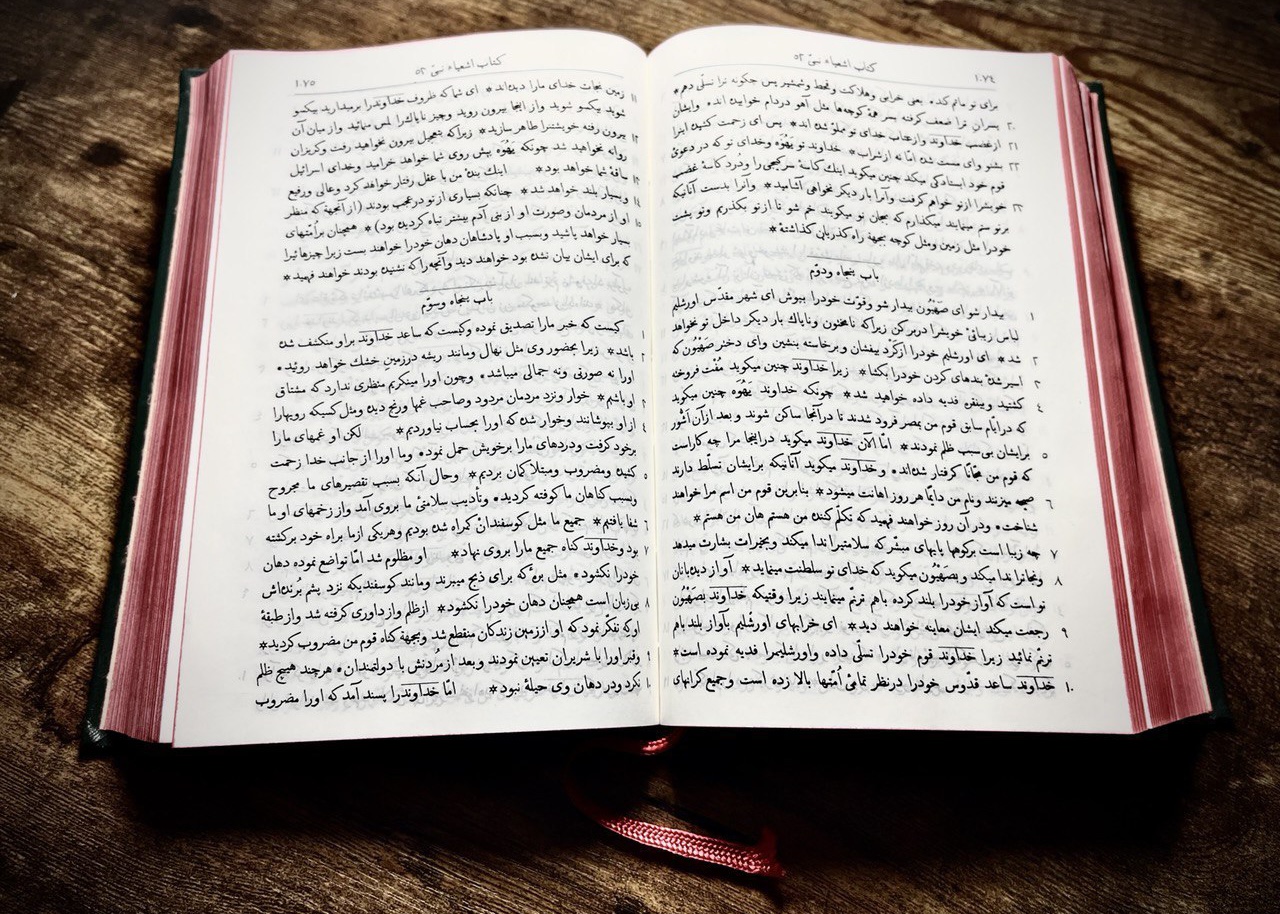 ۱۰۷٤ کتاب اشعیاء نبیّ ٥٢
برای تو ماتم کند، یعنی خرابی و هلاکت و قحط و شمشیر پس چگونه ترا تسلّی دهم *
۲۰ پسران ترا ضعف گرفته بسر همهٔ کوچه‌ها مثل آهو در دام خوابیده اند، وایشان
۲۱ از غضب خداوند و از عتاب خدای تو مملوّ شده اند * پس ای زحمت کشیده اینرا
۲۲ بشنو وای مست شده امّا نه از شراب * خداوند تو یَهُوَه وخدای تو که در دعوی
قوم خود ایستادگی میکند چنین میکوید اینك کاسهٔ سرکیجی را ودُرد کاسهٔ غضب
۲۳ خویشرا از تو خواهم گرفت وآنرا بار دیگر نخواهی آشامید * وآنرا بدست آنانیکه
بر تو ستم مینمایند میکذارم که بجان تو میکویند خم شو تا از تو بکذریم وتو پشت
خودرا مثل زمین ومثل کوچه بجههٔ راه کذریان کذاشتهٔ *
باب پنجاه ودوّم
۱ بیدار شو ای صَهْیُون بیدار شو وقوّت خودرا بپوش ای شهر مقدّس اورشلیم
لباس زیبائیِ خویشرا در بر کن زیرا که نامختون وناپاك بار دیکر داخل تو نخواهد
۲ شد * ای اورشلیم خودرا از کَرْد بیفشان وبرخاسته بنشین وای دختر صَهْیُون که
۳ اسیر شدهٔ بندهای کردن خودرا بکشا * زیرا خداوند چنین میکوید مُفْت فروخته
٤ کشتید وبی‌نقره فدیه داده خواهید شد * چونکه خداوند یَهُوَه چنین میکوید
که در ایّام سابق قوم من بمصر فرود شدند تا در آنجا ساکن شوند وبعد از آن آشور
٥ برایشان بی‌سبب ظلم نمودند * امّا الآن خداوند میکوید در اینجا مرا چه کار است
که قوم من مجّاناً کرفتار شده‌اند، وخداوند میکوید آنانیکه برایشان تسلّط دارند
٦ صیحه میزنند ونام من دایمًا هر روز اهانت میشود * بنابرین قوم من اسم مرا خواهند
شناخت، ودر آن روز خواهند فهمید که تکلّم کننده من هستم هان من هستم *
۷ چه زیبا است بر کوهها پایهای مبشّر که سلامتیرا ندا میکند وبخیرات بشارت میدهد
ونجاترا ندا میکند وبصَهْیُون میکوید که خدای تو سلطنت مینماید * آواز دیده‌بانان
۸ تو است که آواز خودرا بلند کرده باهم ترنّم مینمایند زیرا وقتیکه خداوند بصَهْیُون
۹ رجعت میکند ایشان معاینه خواهند دید * ای خرابهای اورشلیم بآواز بلند باهم
ترنّم نمائید زیرا خداوند قوم خودرا تسلّی داده واورشلیمرا فدیه نموده است *
۱۰ خداوند ساعد قدّوس خودرا در نظر تمامیٔ اُمّتها بالا زده است وجمیع کرانهای
کتاب اشعیاء نبیّ ٥٢ ۱۰۷٥
۱۱ زمین نجات خدای مارا دیده‌اند * ای شما که ظروف خداوندرا برمیدارید بیکسو
شوید بیکسو شوید واز اینجا بیرون روید وچیز ناپاكرا لمس منمائید واز میان آن
۱۲ بیرون رفته خویشتنرا طاهر سازید * زیرا که بتعجیل بیرون نخواهید رفت وکریزان
روانه نخواهید شد چونکه یَهُوَه پیش روی شما خواهد خرامید وخدای اسرائیل
۱۳ ساقهٔ شما خواهد بود * اینك بندهٔ من با عقل رفتار خواهد کرد وعالی ورفیع
۱٤ وبسیار بلند خواهد شد * چنانکه بسیاری از تو در عجب بودند (از آنجههٔ که منظر
۱٥ او از مردمان وصورت او از بنی آدم بیشتر تباه کردیده بود) * همچنان بر اُمّتهای
بسیار خواهد پاشید وبسبب او پادشاهان دهان خودرا خواهند بست زیرا چیزهائیرا
که برای ایشان بیان نشده بود خواهند دید وآنچه را که نشنیده بودند خواهند فهمید *
باب پنجاه وسوّم
۱ کیست که خبر مارا تصدیق نموده وکیست که ساعد خداوند بر او منکشف شده
۲ باشد * زیرا بحضور وی مثل نهال ومانند ریشه در زمین خشك خواهد روئید،
اورا نه صورتی ونه جمالی میباشد، وچون اورا مینکریم منظری ندارد که مشتاق
۳ او باشیم * خوار ونزد مردمان مردود وصاحب غمها ورنج دیده ومثل کسیکه رویهارا
٤ از او بپوشانند وخوار شده که اورا بحساب نیاوردیم * لکن او غمهای مارا
برخود گرفت ودردهای مارا بر خویش حمل نموده، وما اورا از جانب خدا زحمت
٥ کشیده ومضروب ومبتلا کمان بردیم * وحال آنکه بسبب تقصیرهای ما مجروح
وبسبب کناهان ما کوفته کردید، وتأدیب سلامتیٔ ما بر وی آمد واز زخمهای او ما
٦ شفا یافتیم * جمیع ما مثل کوسفندان کمراه شده بودیم وهر یکی از ما براه خود برکشته
۷ بود وخداوند کناه جمیع مارا بر وی نهاد * او مظلوم شد امّا تواضع نموده دهان
خودرا نکشود، مثل برّهٔ که برای ذبح میبرند ومانند کوسفندیکه نزد پشم برُنده‌اش
۸ بی‌زبان است همچنان دهان خودرا نکشود * از ظلم واز داوری کرفته شد واز طبقهٔ
او که تفکّر نمود که او از زمین زندکان منقطع شد وبجههٔ کناه قوم من مضروب کردید *
۹ وقبر اورا با شریران تعیین نمودند وبعد از مُردنش با دولتمندان، هرچند هیچ ظلم
۱۰ نکرد ودر دهان وی حیلهٔ نبود * امّا خداوندرا پسند آمد که اورا مضروب